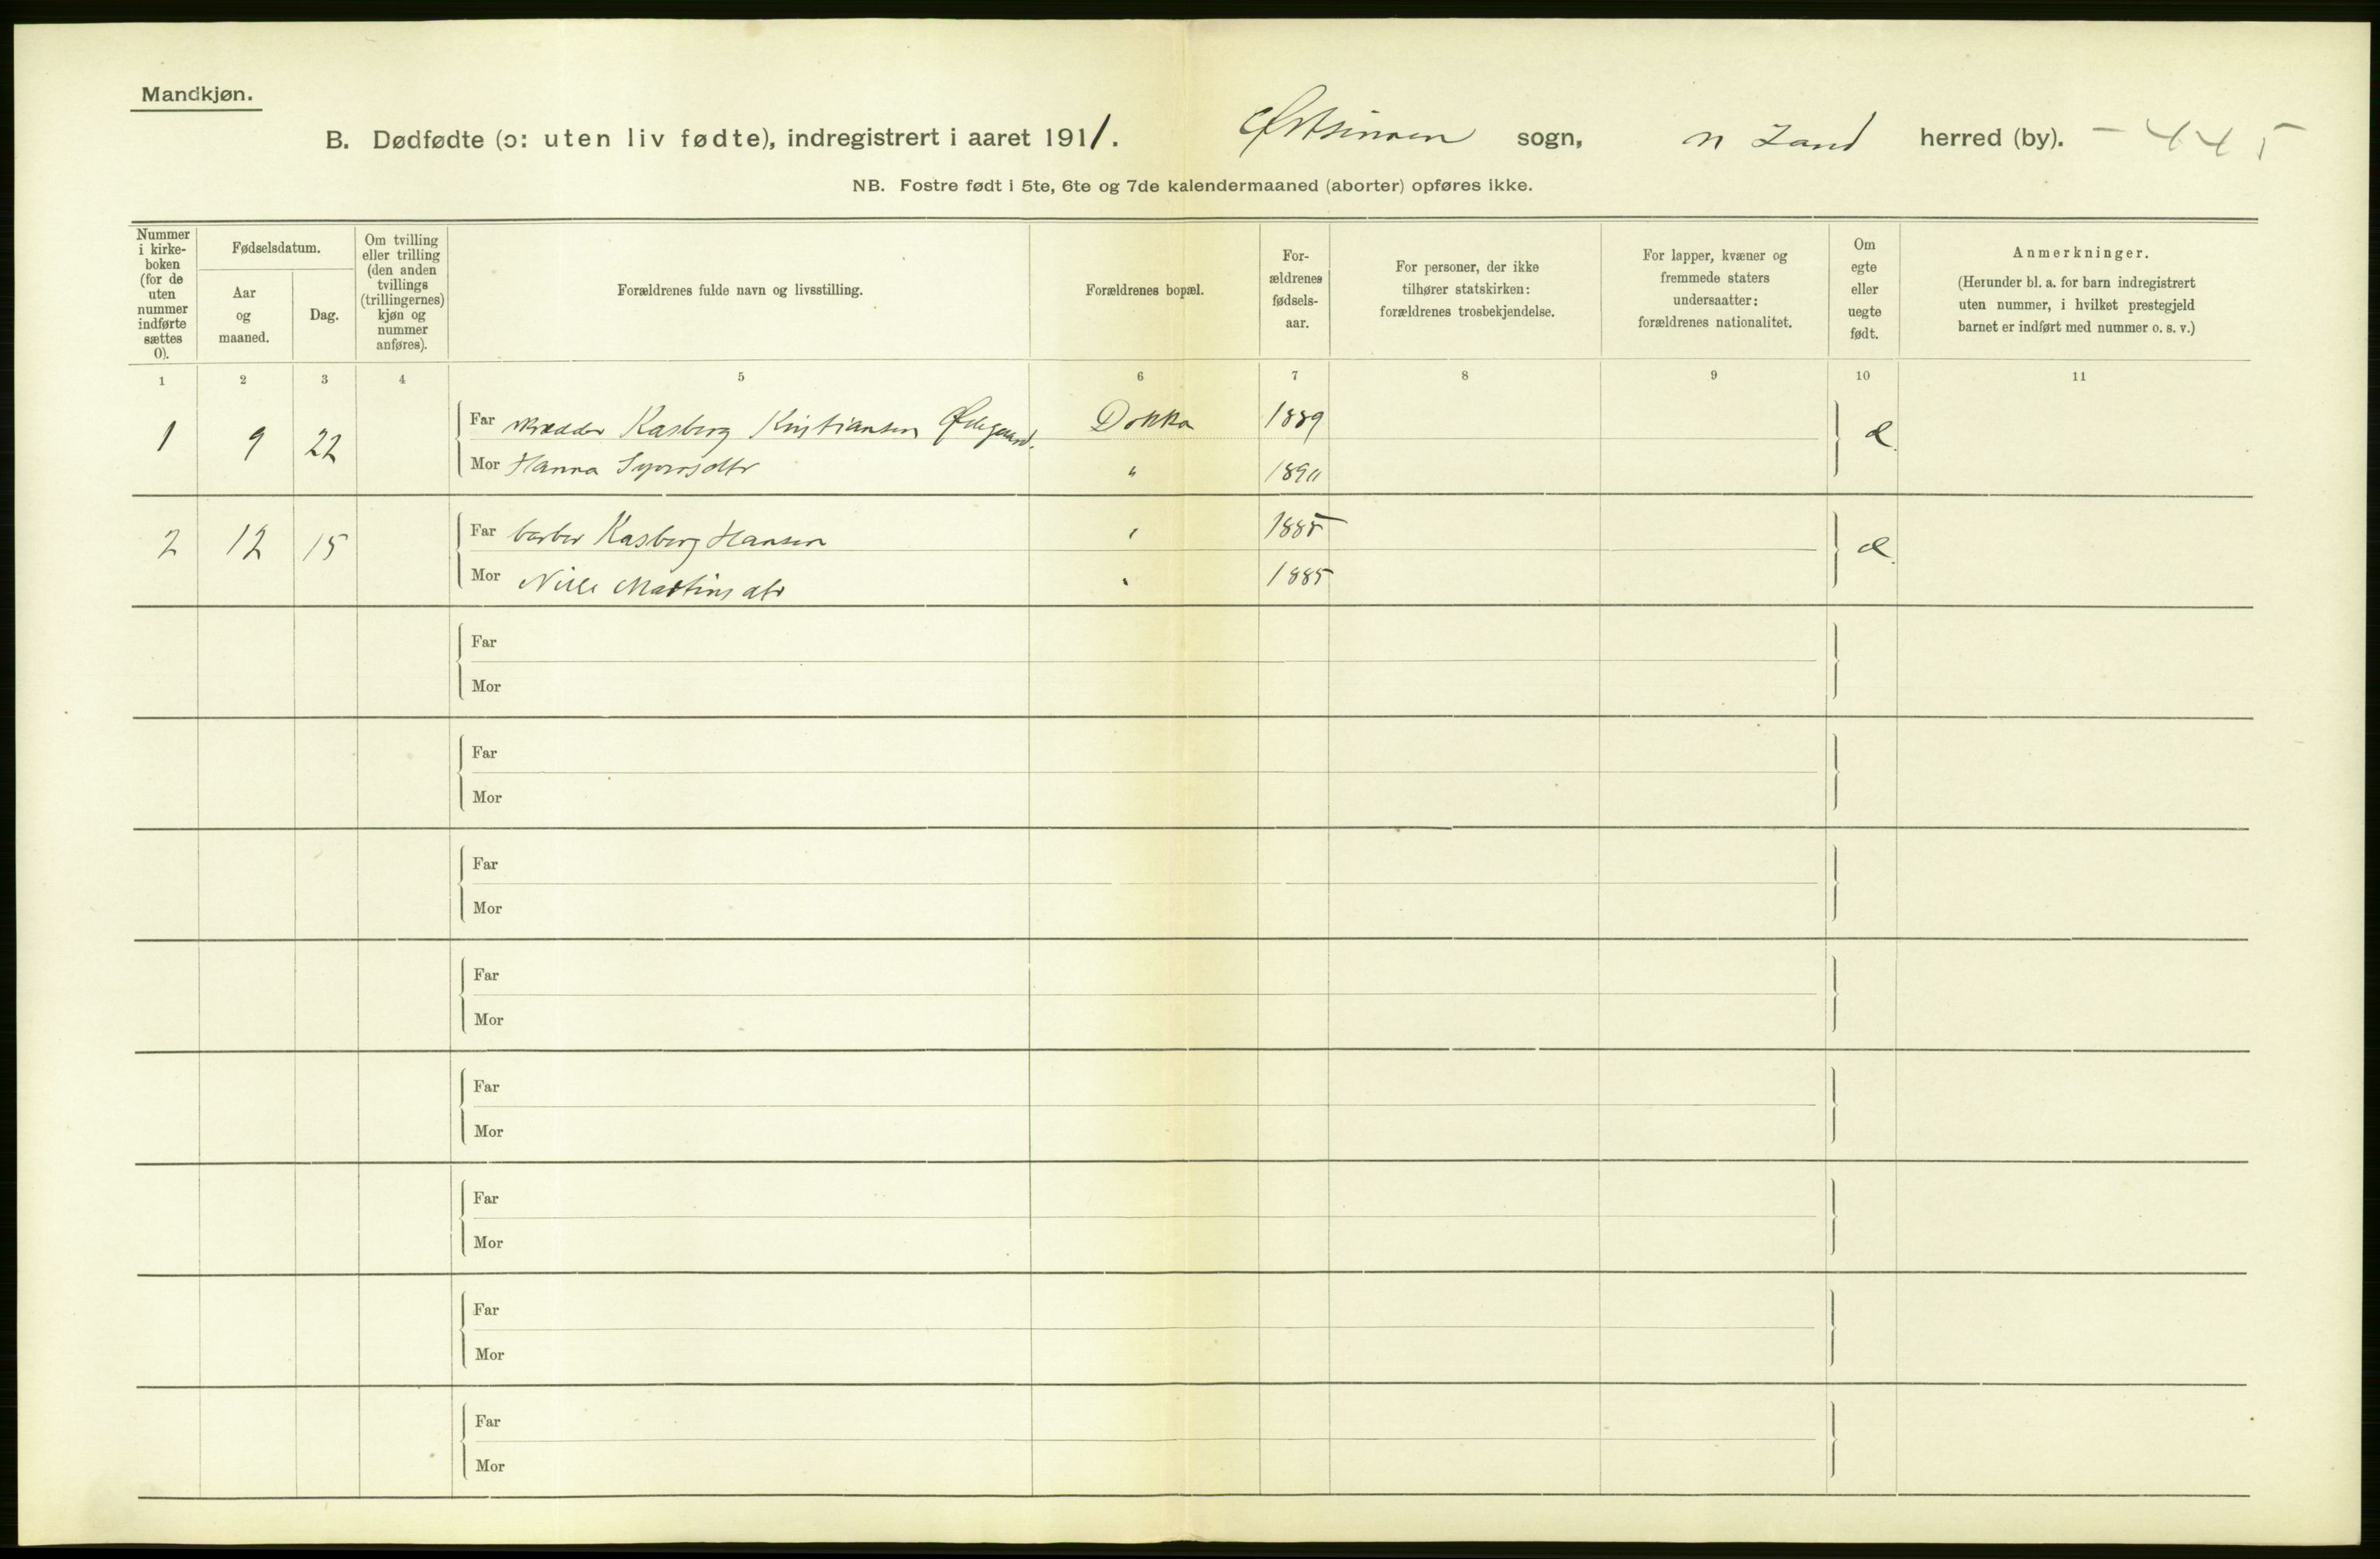 Mandkjøn.
B. Dødfødte (ɔ: uten liv fødte), indregistrert i aaret 1911. Østsinnen sogn, n Land herred (by). – 445
NB. Fostre født i 5te, 6te og 7de kalendermaaned (aborter) opføres ikke.
Nummer
i kirke-
boken
(for de
uten
nummer
indførte
sættes
0).
Fødselsdatum.
Aar
og
maaned.
Dag.
Om tvilling
eller trilling
(den anden
tvillings
(trillingernes)
kjøn og
nummer
anføres).
Forældrenes fulde navn og livsstilling.
Forældrenes bopæl.
For-
ældrenes
fødsels-
aar.
For personer, der ikke
tilhører statskirken:
forældrenes trosbekjendelse.
For lapper, kvæner og
fremmede staters
undersaatter:
forældrenes nationalitet.
Om
egte
eller
uegte
født.
Anmerkninger.
(Herunder bl. a. for barn indregistrert
uten nummer, i hvilket prestegjeld
barnet er indført med nummer o. s. v.)
1 2 3 4 5 6 7 8 9 10 11
1 9 22 Far skrædder Kasberg Kristiansen Ødegaard. Dokka 1889 e.
Mor Hanna " 1890
2 12 15 Far barber Kasberg Hansen " 1885 e.
Mor Martinsdtr " 1885
Far
Mor
Far
Mor
Far
Mor
Far
Mor
Far
Mor
Far
Mor
Far
Mor
Far
Mor